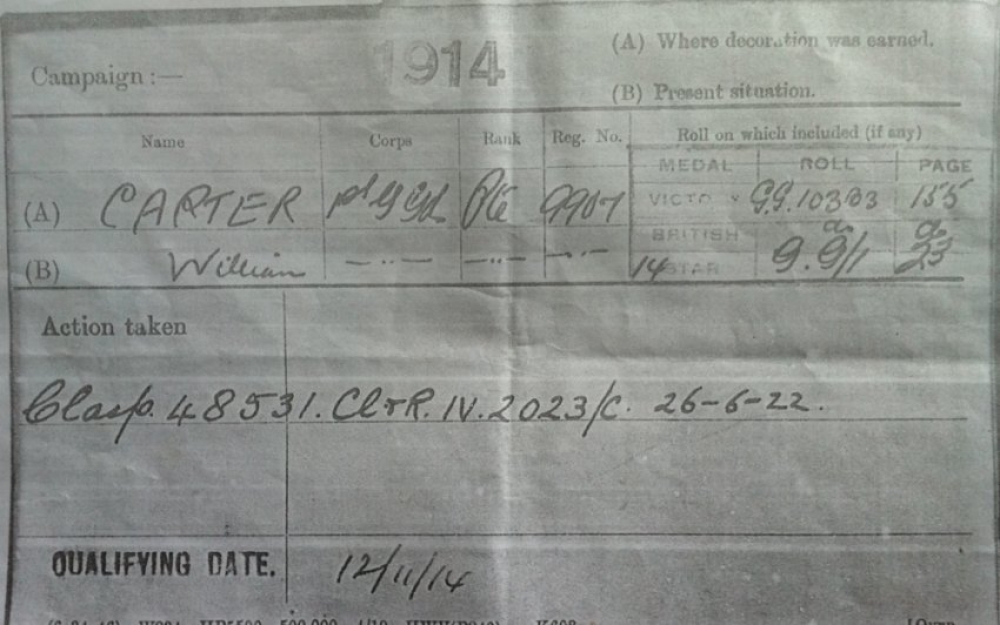 Campaign :— 1914
(A) Where decoration was earned.
(B) Present situation.
Name Corps Rank Reg. No. Roll on which included (if any)
MEDAL ROLL PAGE
(A) CARTER Pte 9907 VICTORY G.G.103B3 155
BRITISH do do
(B) William —„— —„— —„— 14 STAR G.G/1 23
Action taken
Clasp. 48531. Cl & R. IV. 2023/C. 26-6-22.
QUALIFYING DATE. 12/11/14